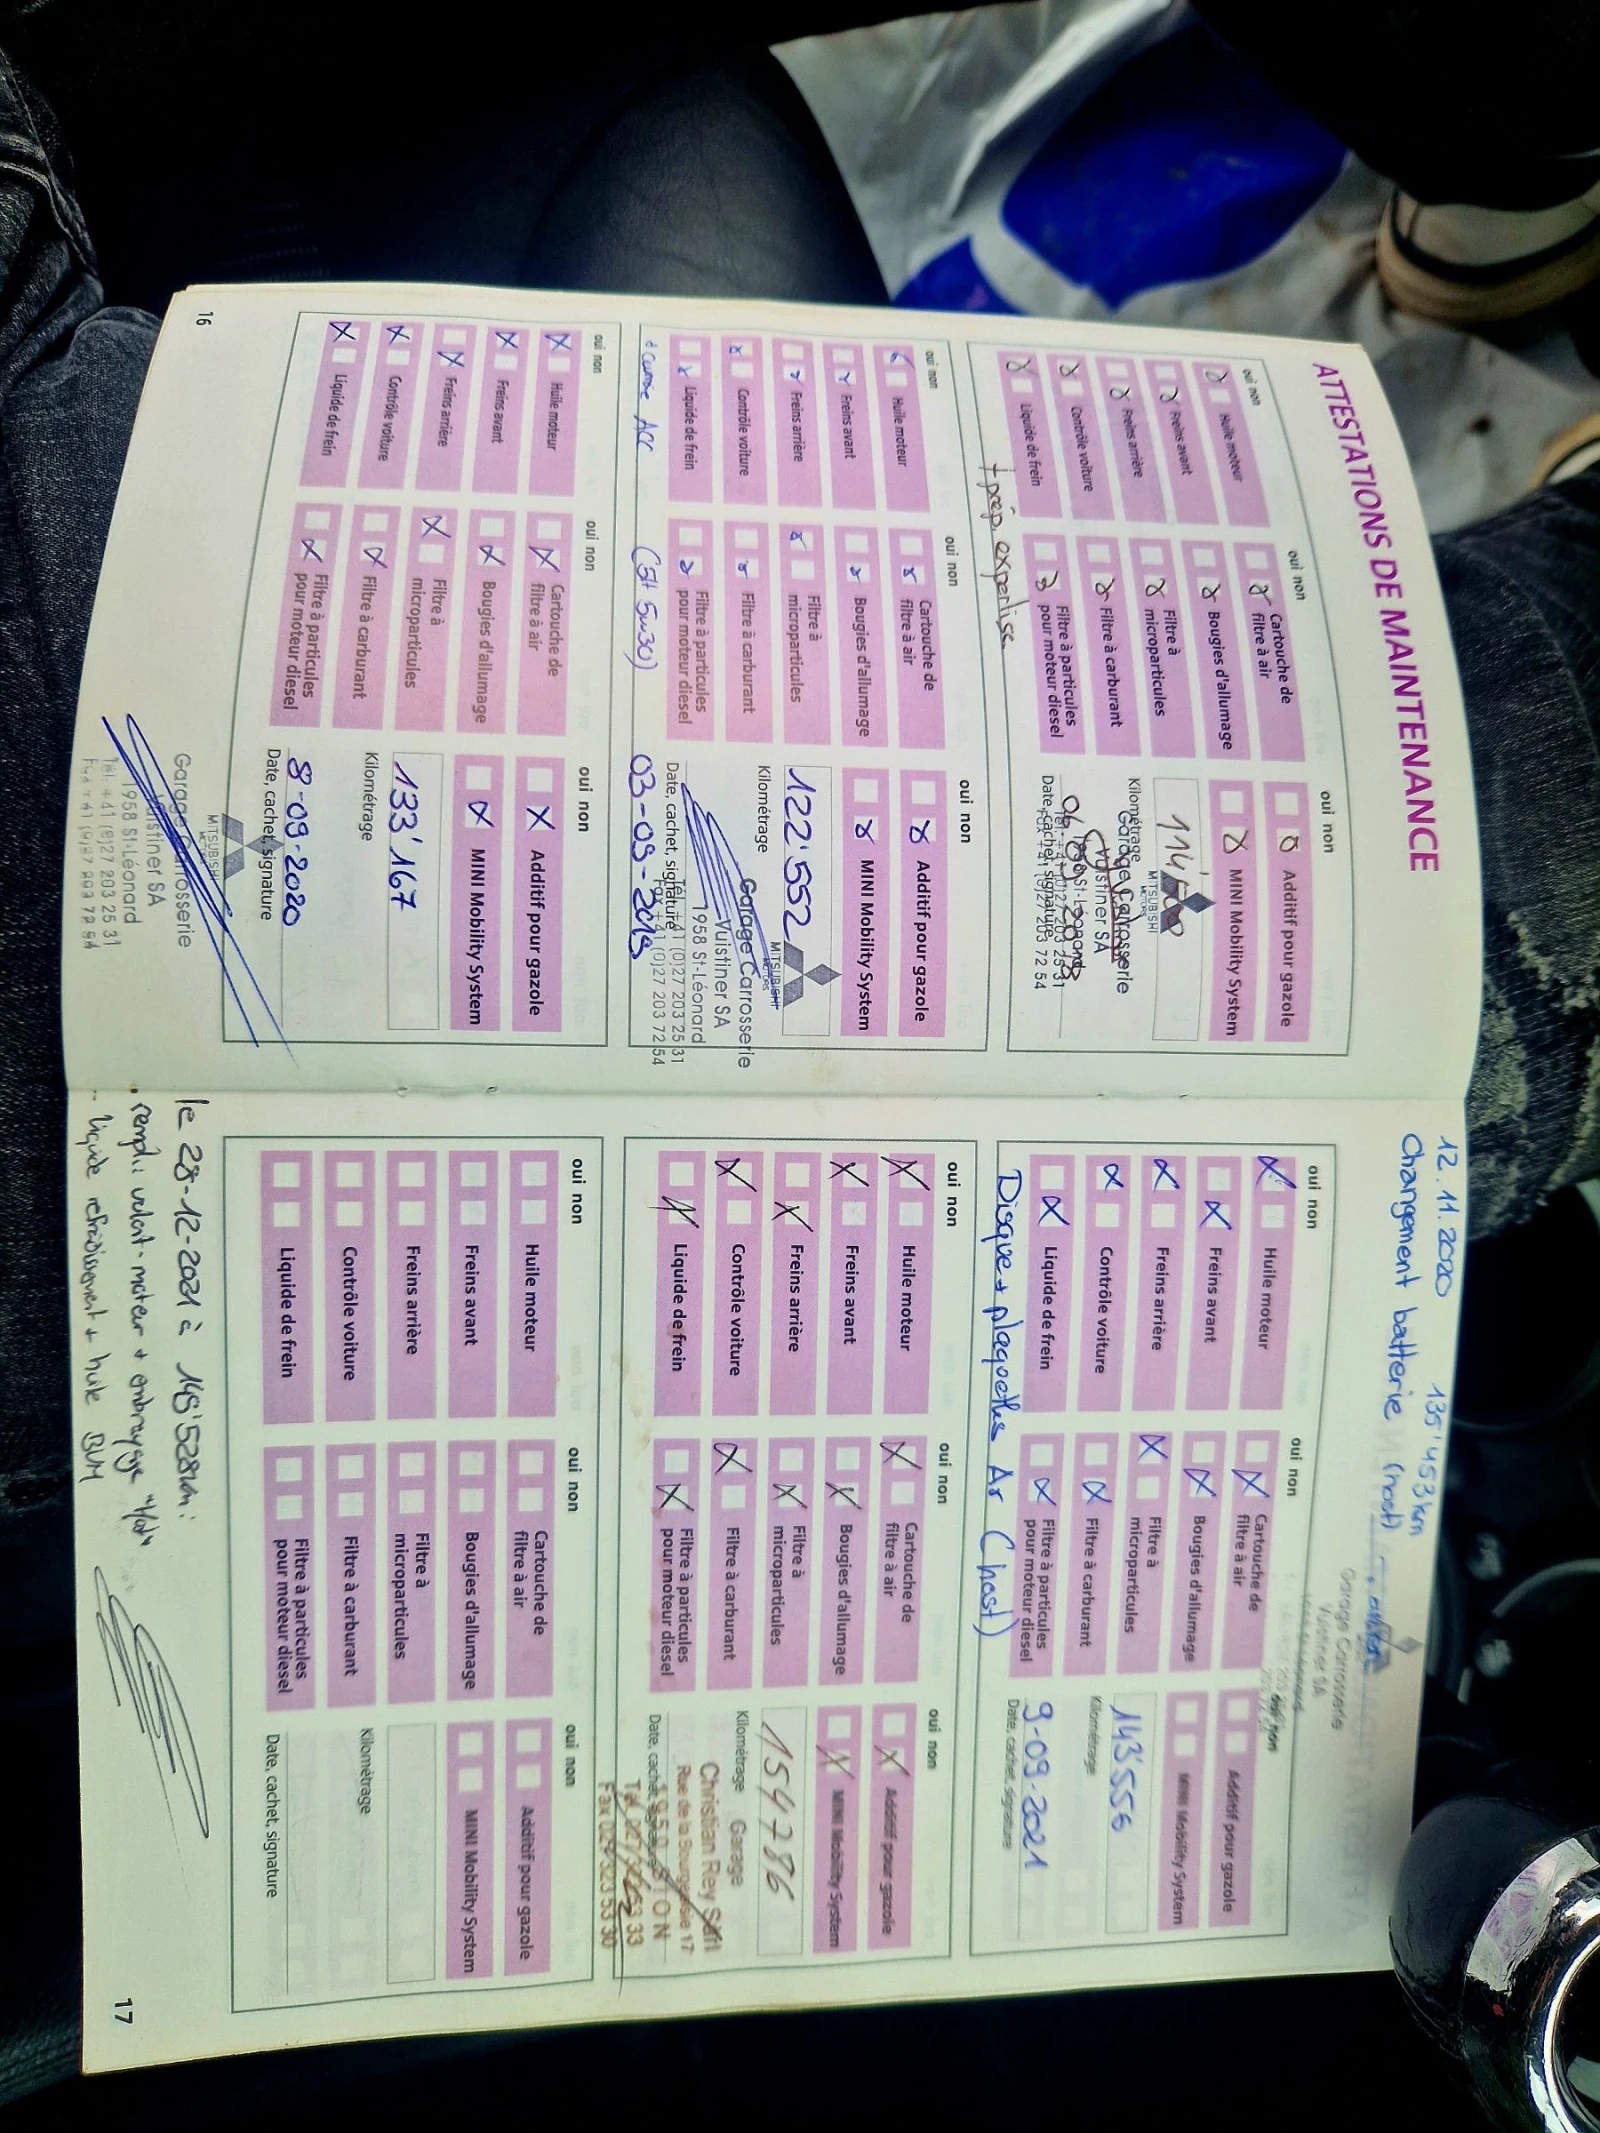 ATTESTATIONS DE MAINTENANCE
oui non
Huile moteur
Freins avant
Freins arrière
Contrôle voiture
Liquide de frein
oui non
Cartouche de
filtre à air
Bougies d'allumage
Filtre à
microparticules
Filtre à carburant
Filtre à particules
pour moteur diesel
oui non
Additif pour gazole
MINI Mobility System
Kilométrage
MITSUBISHI
MOTORS
Garage Carrosserie
Vuistiner SA
1958 St-Léonard
Tél. +41 (0)27 203 25 31
Fax +41 (0)27 203 72 54
Date, cachet, signature
+ prép. expertise
oui non
Huile moteur
Freins avant
Freins arrière
Contrôle voiture
Liquide de frein
oui non
Cartouche de
filtre à air
Bougies d'allumage
Filtre à
microparticules
Filtre à carburant
Filtre à particules
pour moteur diesel
oui non
Additif pour gazole
MINI Mobility System
122'552
Kilométrage
MITSUBISHI
MOTORS
Garage Carrosserie
Vuistiner SA
1958 St-Léonard
Tél. +41 (0)27 203 25 31
Fax +41 (0)27 203 72 54
Date, cachet, signature
03-09-2019
(5lt 5w30)
oui non
Huile moteur
Freins avant
Freins arrière
Contrôle voiture
Liquide de frein
oui non
Cartouche de
filtre à air
Bougies d'allumage
Filtre à
microparticules
Filtre à carburant
Filtre à particules
pour moteur diesel
oui non
Additif pour gazole
MINI Mobility System
133'167
Kilométrage
8-09-2020
Date, cachet, signature
MITSUBISHI
MOTORS
Garage Carrosserie
Vuistiner SA
1958 St-Léonard
Tél. +41 (0)27 203 25 31
Fax +41 (0)27 203 72 54
16
12.11.2020 135'453 km
Changement batterie (host)
Garage Carrosserie
Vuistiner SA
oui non
Huile moteur
Freins avant
Freins arrière
Contrôle voiture
Liquide de frein
oui non
Cartouche de
filtre à air
Bougies d'allumage
Filtre à
microparticules
Filtre à carburant
Filtre à particules
pour moteur diesel
oui non
Additif pour gazole
MINI Mobility System
143'556
Kilométrage
9-09-2021
Date, cachet, signature
Disque + plaquettes Ar (host)
oui non
Huile moteur
Freins avant
Freins arrière
Contrôle voiture
Liquide de frein
oui non
Cartouche de
filtre à air
Bougies d'allumage
Filtre à
microparticules
Filtre à carburant
Filtre à particules
pour moteur diesel
oui non
Additif pour gazole
MINI Mobility System
154786
Kilométrage
Garage
Christian Rey Sàrl
Rue de la Bourgeoisie 17
1950 SION
Date, cachet, signature
oui non
Huile moteur
Freins avant
Freins arrière
Contrôle voiture
Liquide de frein
oui non
Cartouche de
filtre à air
Bougies d'allumage
Filtre à
microparticules
Filtre à carburant
Filtre à particules
pour moteur diesel
oui non
Additif pour gazole
MINI Mobility System
Kilométrage
Date, cachet, signature
le 28-12-2021 à 145'528km :
• rempl. volant-moteur + embrayage
- liquide refroidissement + huile BVM
17